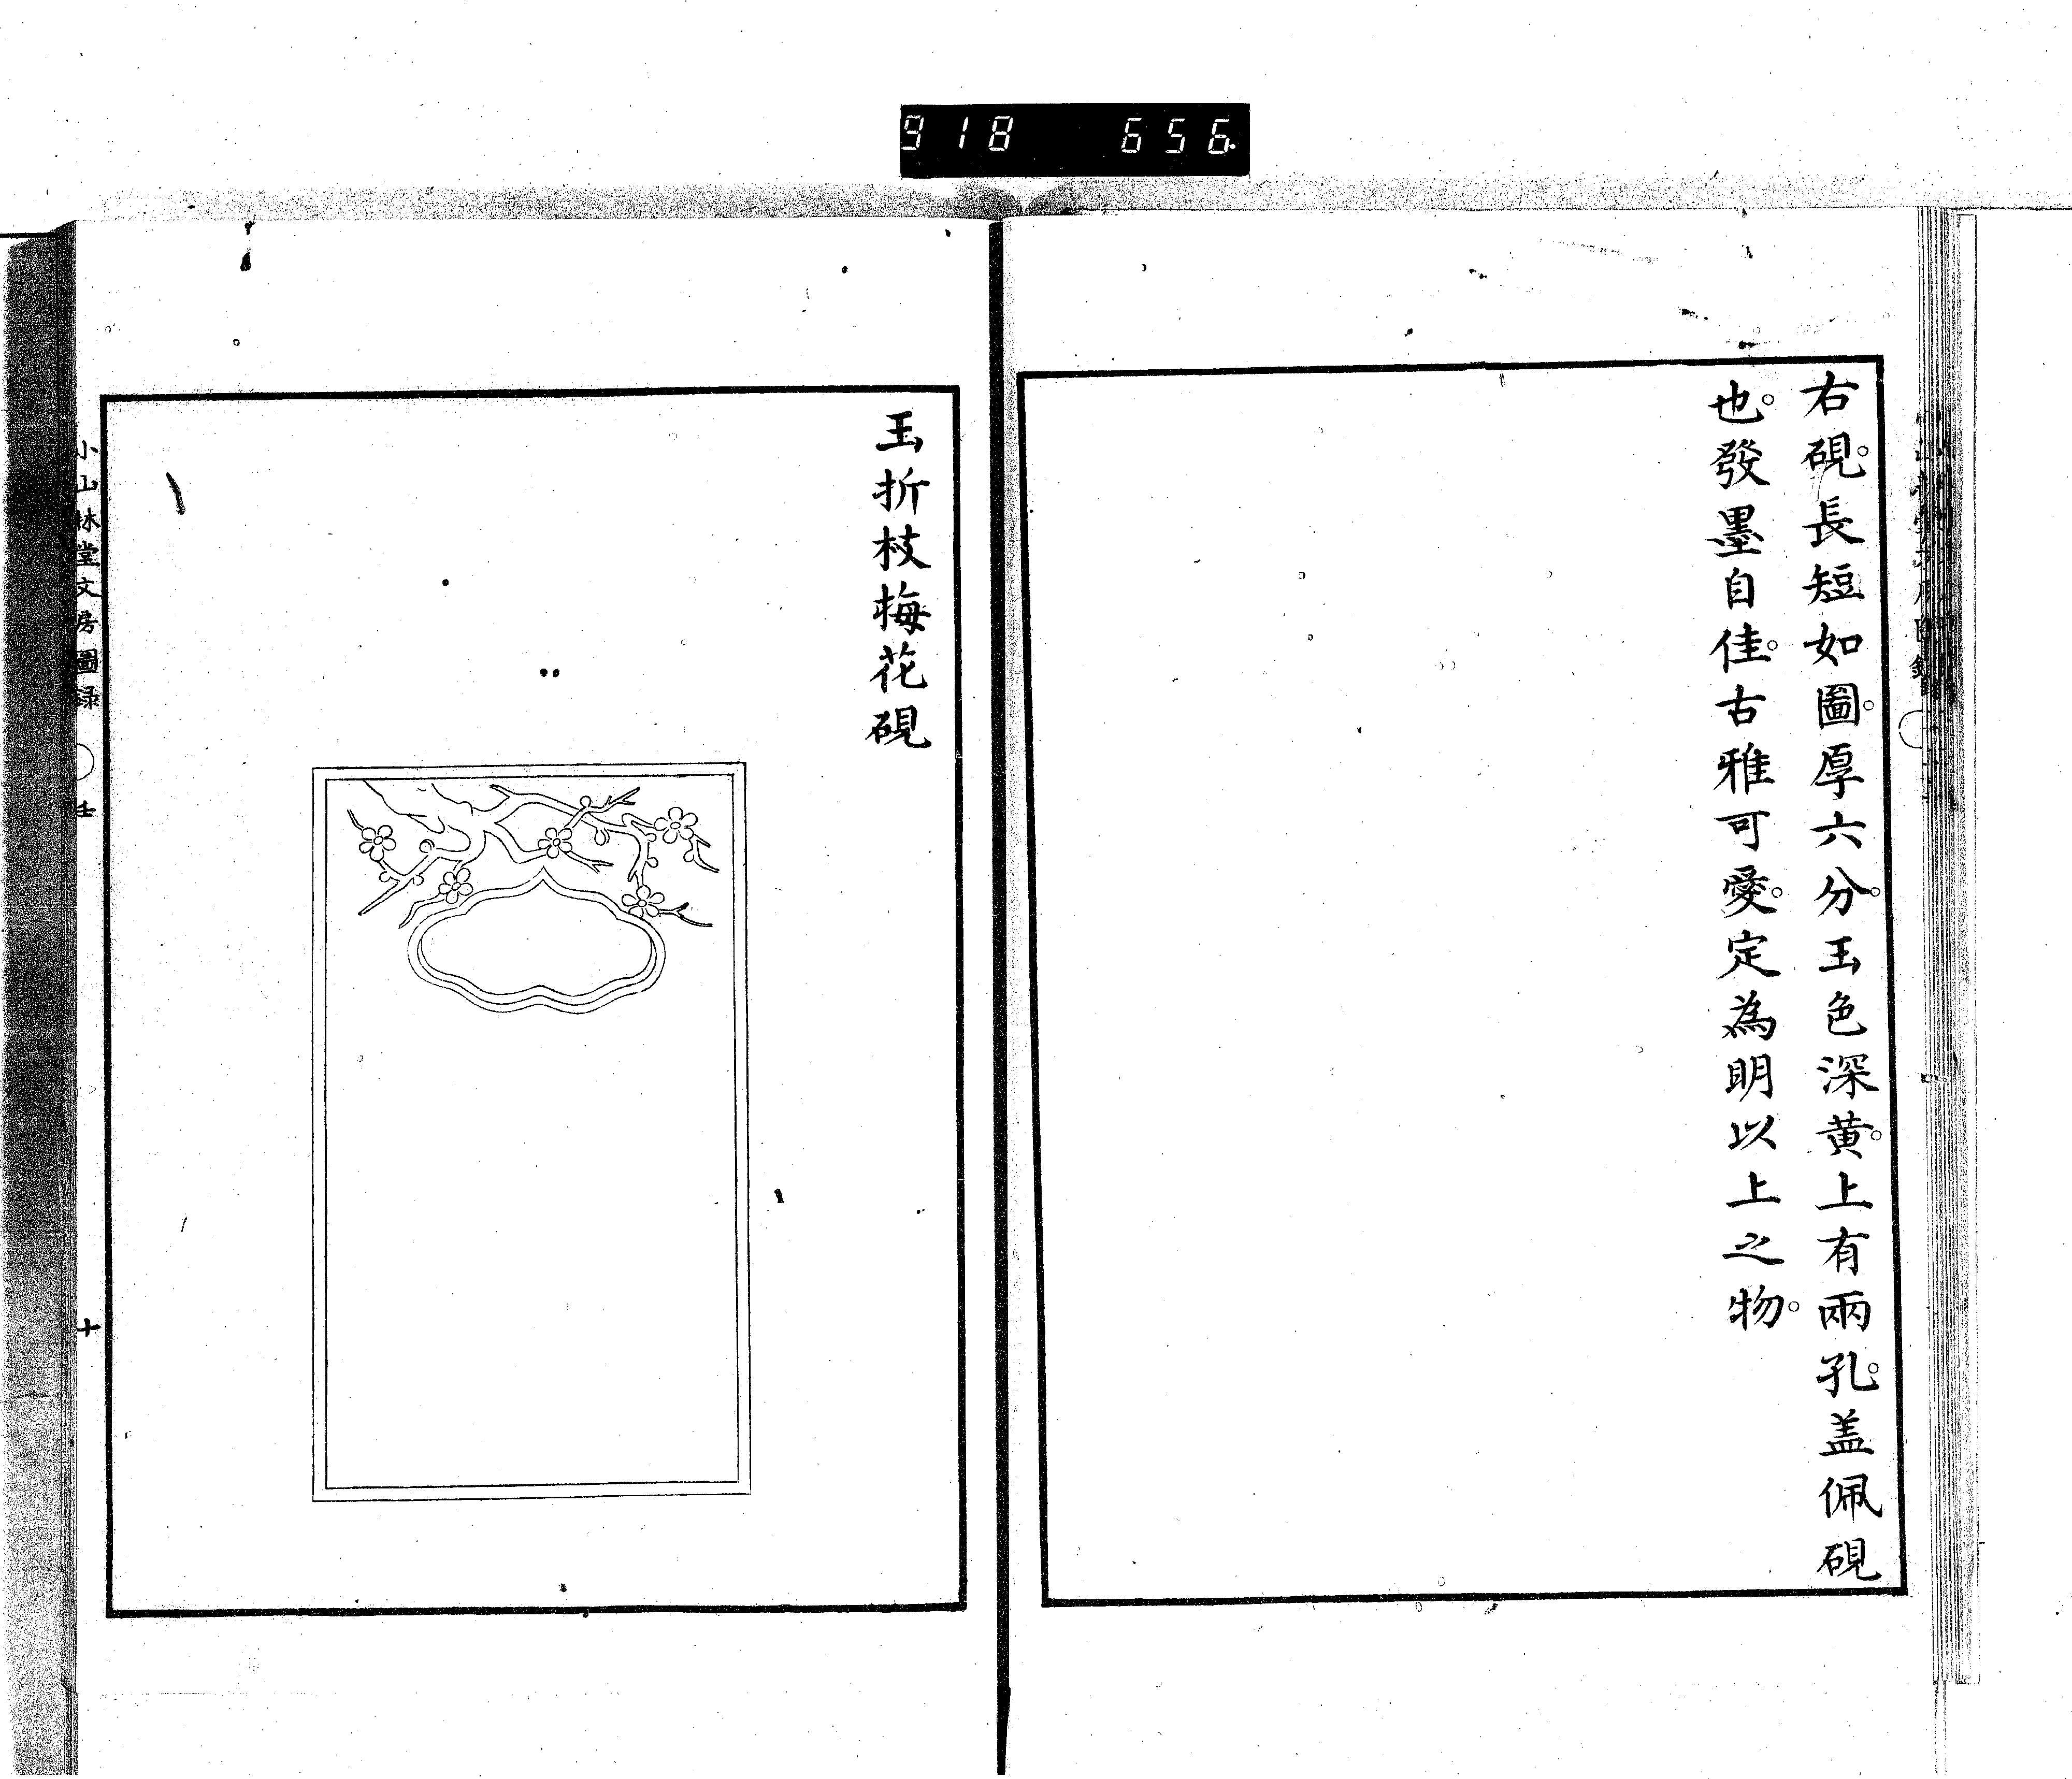 918 656
右硯。長短如圖。厚六分。玉色深黄。上有兩孔。盖佩硯
也。發墨自佳。古雅可愛。定為明以上之物。
玉折枝梅花硯
小山林堂文房圖録 〇 壬 十